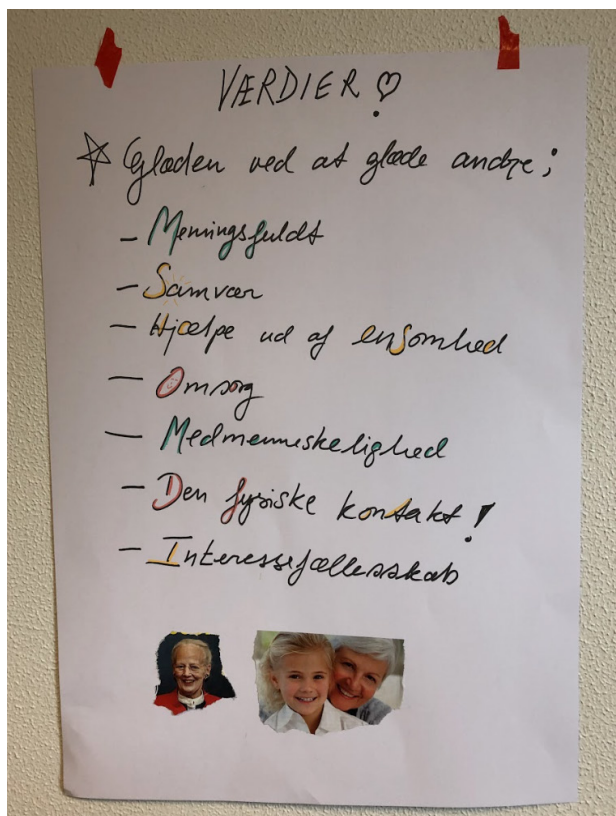 VÆRDIER!
Glæden ved at glæde andre;
- Meningsfuldt
- Samvær
- Hjælpe ud af ensomhed
- Omsorg
- Medmenneskelighed
- Den fysiske kontakt!
- Interessefællesskab